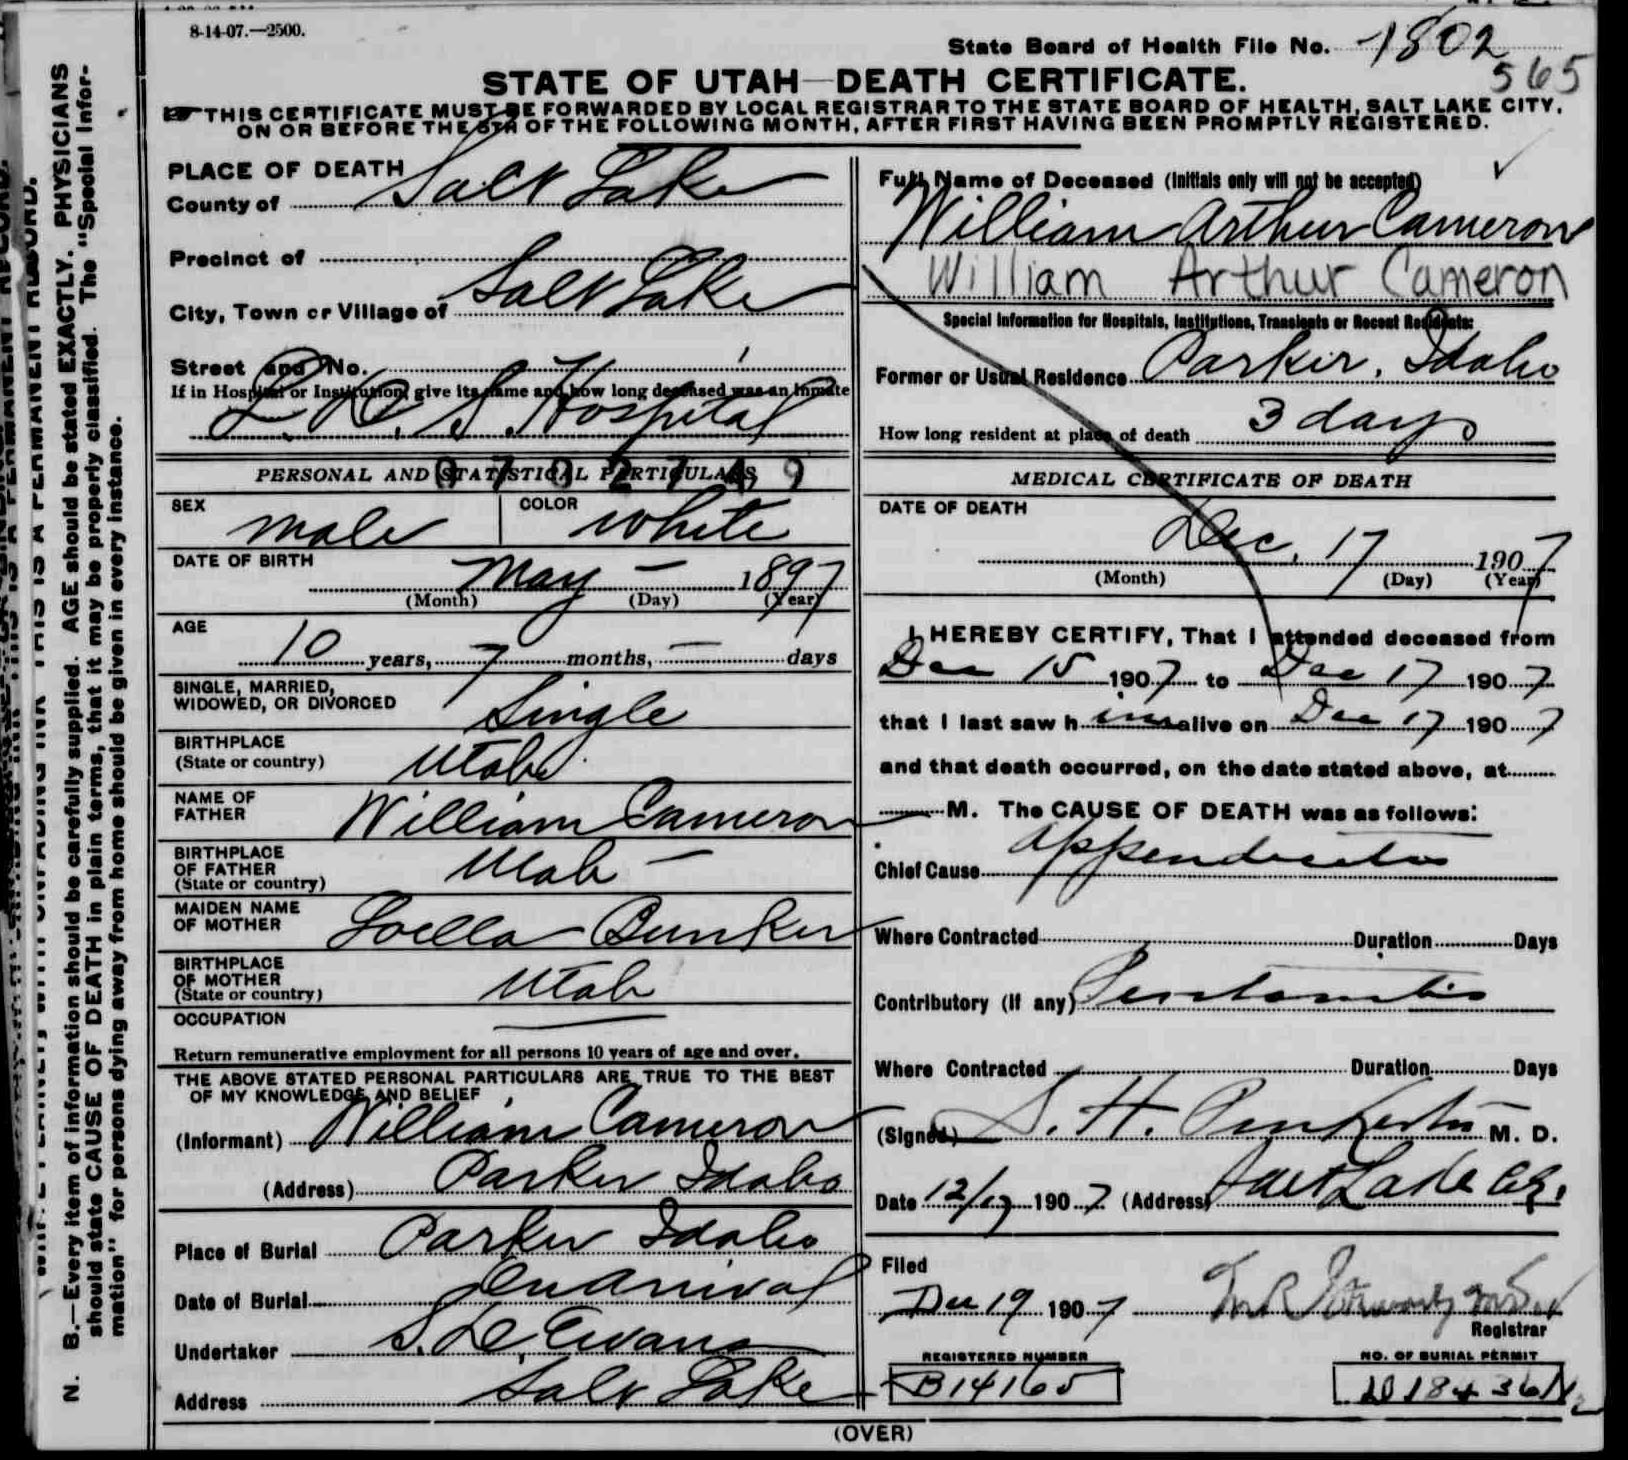 8-14-07.—2500.
State Board of Health File No. 1802
565
STATE OF UTAH—DEATH CERTIFICATE.
THIS CERTIFICATE MUST BE FORWARDED BY LOCAL REGISTRAR TO THE STATE BOARD OF HEALTH, SALT LAKE CITY,
ON OR BEFORE THE 5TH OF THE FOLLOWING MONTH, AFTER FIRST HAVING BEEN PROMPTLY REGISTERED.
PLACE OF DEATH
County of Salt Lake
Precinct of
City, Town or Village of Salt Lake
Street and No.
If in Hospital or Institution, give its name and how long deceased was an inmate
L. D. S. Hospital
PERSONAL AND STATISTICAL PARTICULARS
SEX male COLOR white
DATE OF BIRTH
May — 1897
(Month) (Day) (Year)
AGE
10 years, 7 months, — days
SINGLE, MARRIED,
WIDOWED, OR DIVORCED Single
BIRTHPLACE
(State or country) Utah
NAME OF
FATHER William Cameron
BIRTHPLACE
OF FATHER
(State or country) Utah —
MAIDEN NAME
OF MOTHER Loella Bunker
BIRTHPLACE
OF MOTHER
(State or country) Utah
OCCUPATION
Return remunerative employment for all persons 10 years of age and over.
THE ABOVE STATED PERSONAL PARTICULARS ARE TRUE TO THE BEST
OF MY KNOWLEDGE AND BELIEF
(Informant) William Cameron
(Address) Parker Idaho
Place of Burial Parker Idaho
Date of Burial On Arrival
Undertaker S. D. Evans
Address Salt Lake
Full Name of Deceased (Initials only will not be accepted)
William Arthur Cameron
William Arthur Cameron
Special Information for Hospitals, Institutions, Transients or Recent Residents:
Former or Usual Residence Parker, Idaho
How long resident at place of death 3 days
MEDICAL CERTIFICATE OF DEATH
DATE OF DEATH
Dec. 17 1907
(Month) (Day) (Year)
I HEREBY CERTIFY, That I attended deceased from
Dec 15 1907 to Dec 17 1907
that I last saw him alive on Dec 17 1907
and that death occurred, on the date stated above, at
M. The CAUSE OF DEATH was as follows:
Chief Cause Appendicitis
Where Contracted Duration Days
Contributory (If any) Peritonitis
Where Contracted Duration Days
(Signed) S. H. Pinkerton M. D.
Date 12/17 1907 (Address) Salt Lake City.
Filed
Dec 19 1907
Registrar
REGISTERED NUMBER
B14165
NO. OF BURIAL PERMIT
(OVER)
N. B.—Every item of information should be carefully supplied. AGE should be stated EXACTLY. PHYSICIANS
should state CAUSE OF DEATH in plain terms, that it may be properly classified. The "Special Infor-
mation" for persons dying away from home should be given in every instance.